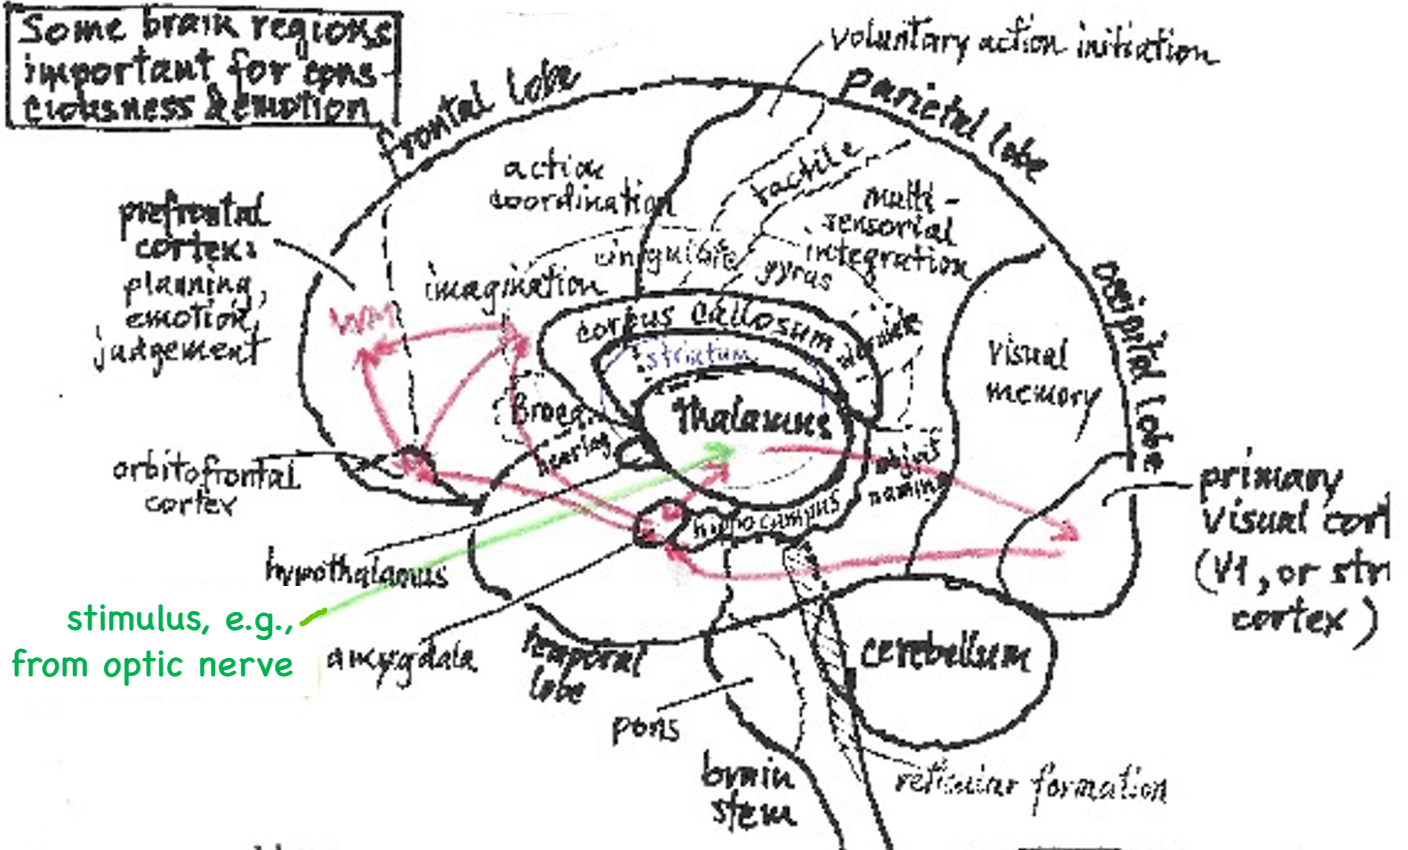 Some brain regions
important for cons-
ciousness & emotion
frontal lobe
voluntary action initiation
parietal lobe
action
coordination
tactile
multi-
sensorial
integration
prefrontal
cortex:
planning,
emotion,
judgement
cingulate
gyrus
imagination
occipital lobe
WM
corpus callosum
striatum
visual
memory
Broca
thalamus
hearing
object
naming
orbitofrontal
cortex
primary
visual cort
(V1, or stri
cortex)
hippocampus
hypothalamus
stimulus, e.g.,
from optic nerve
amygdala
temporal
lobe
cerebellum
pons
brain
stem
reticular formation